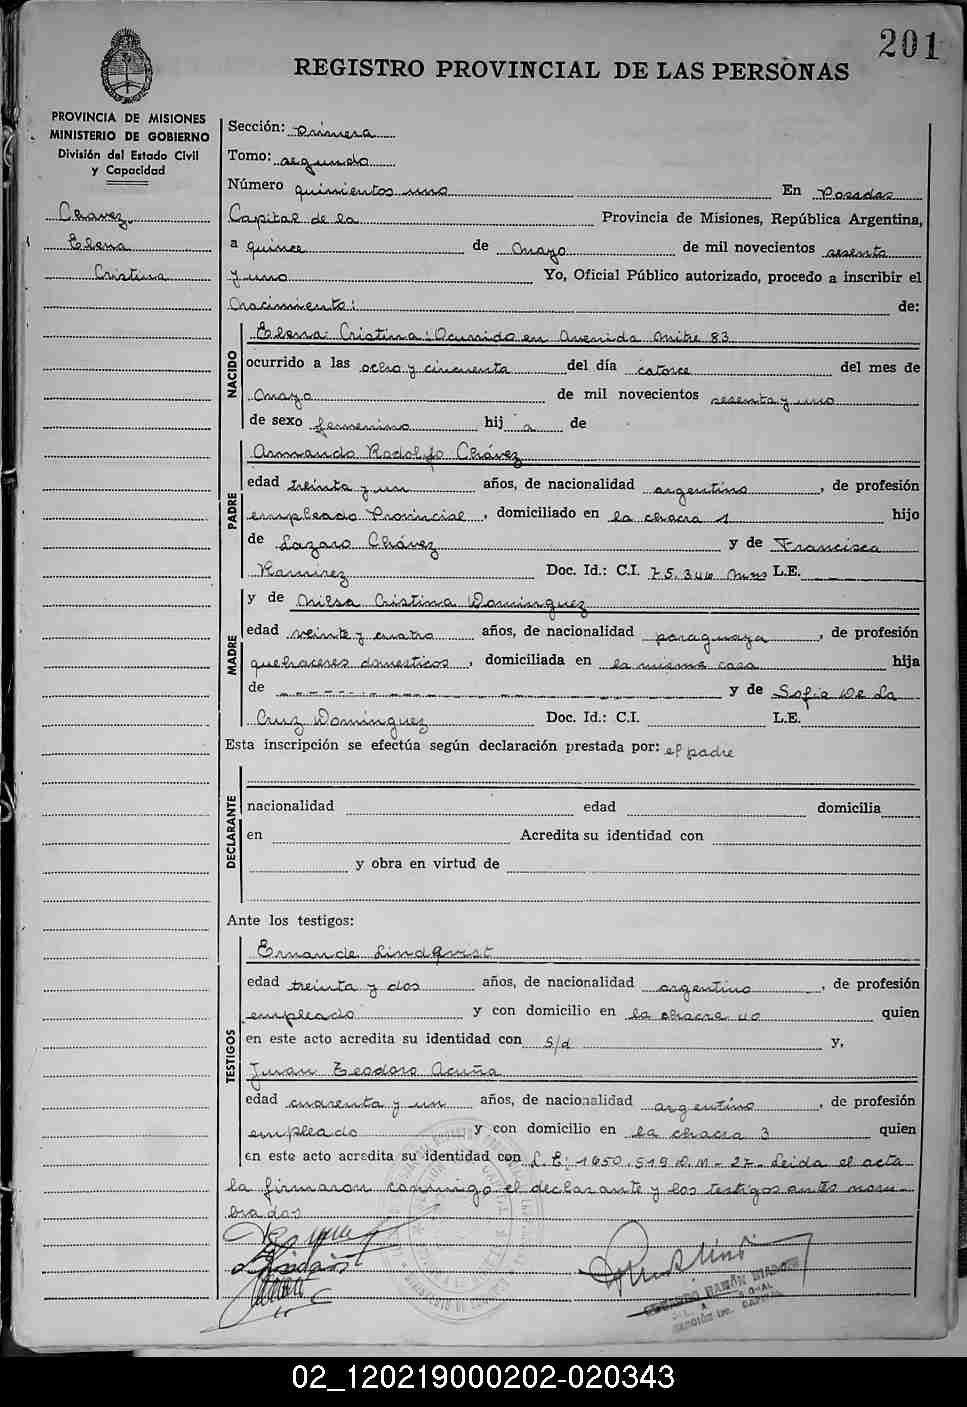 201
REGISTRO PROVINCIAL DE LAS PERSONAS
PROVINCIA DE MISIONES
MINISTERIO DE GOBIERNO
División del Estado Civil
y Capacidad
Chavez
Elena
Cristina
Sección: Primera
Tomo: segundo
Número quinientos uno En Posadas
Capital de la Provincia de Misiones, República Argentina,
a quince de mayo de mil novecientos sesenta
y uno Yo, Oficial Público autorizado, procedo a inscribir el
Nacimiento: de:
NACIDO
Elena Cristina: Ocurrido en Avenida Mitre 83
ocurrido a las ocho y cincuenta del día catorce del mes de
Mayo de mil novecientos sesenta y uno
de sexo femenino hij a de
PADRE
Armando Rodolfo Chávez
edad treinta y un años, de nacionalidad argentino, de profesión
empleado Provincial, domiciliado en la chacra 1 hijo
de Lazaro Chávez y de Francisca
Ramirez Doc. Id.: C.I. 75.346 Mns L.E.
MADRE
y de Nilsa Cristina Dominguez
edad veinte y cuatro años, de nacionalidad paraguaya, de profesión
quehaceres domesticos, domiciliada en la misma casa hija
de y de Sofia De La
Cruz Dominguez Doc. Id.: C.I. L.E.
Esta inscripción se efectúa según declaración prestada por: el padre
DECLARANTE
nacionalidad edad domicilia
en Acredita su identidad con
y obra en virtud de
Ante los testigos:
TESTIGOS
Ernande Lindqvist
edad treinta y dos años, de nacionalidad argentino, de profesión
empleado y con domicilio en la chacra 40 quien
en este acto acredita su identidad con s/d y,
Juan Teodoro Acuña
edad cuarenta y un años, de nacionalidad argentino, de profesión
empleado y con domicilio en la chacra 3 quien
en este acto acredita su identidad con L.E: 1650.519 D.M-27-Leida el acta
la firmaron conmigo el declarante y los testigos antes nom-
brados
02_120219000202-020343